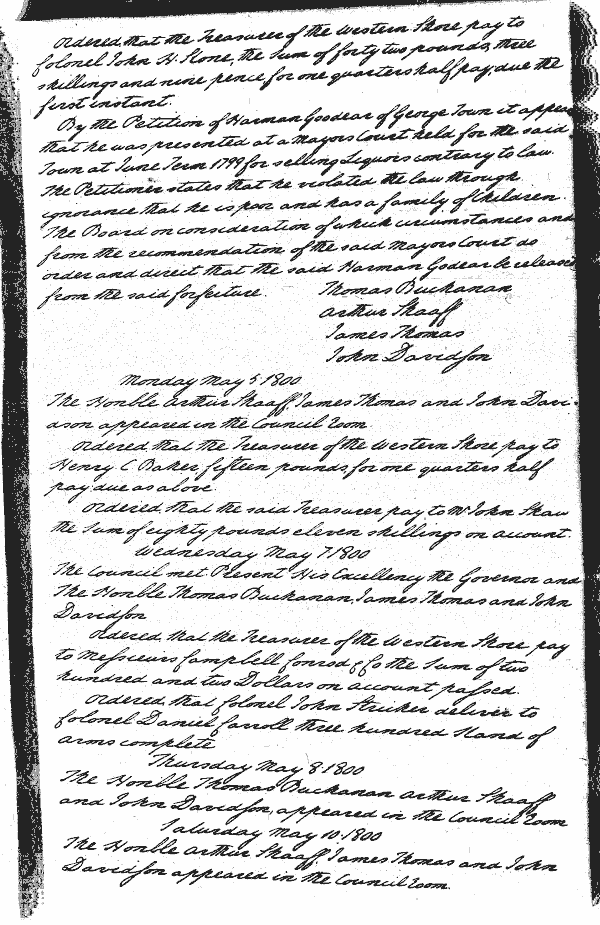 Ordered, that the Treasurer of the Western Shore pay to
Colonel John H. Stone, the Sum of forty two pounds, three
skillings and nine pence, for one quarters half pay, due the
first instant.
By the Petition of Harman Goodear of George Town it appears
that he was presented at a Mayors Court held for the said
Town at June Term 1799 for selling Liquors contrary to law
The Petitioner states that he violated the law through
ignorance that he is poor and has a family of Children.
The Board on consideration of which circumstances and
from the recommendation of the said Mayors Court do
order and direct that the said Harman Godear be released
from the said forfeiture.
Thomas Buchanan
Arthur Shaaff
James Thomas
John Davidson
Monday May 5. 1800
The Honble Arthur Shaaff, James Thomas and John Davi-
dson appeared in the Council Room
Ordered, that the Treasurer of the Western Shore pay to
Henry C Baker, fifteen pounds, for one quarters half
pay due as above.
Ordered, that the said Treasurer pay to Mr John Shaw
the Sum of eighty pounds eleven skillings on account.
Wednesday May 7. 1800
The Council met. Present His Excellency the Governor and
The Honble Thomas Buchanan, James Thomas and John
Davidson
Ordered, that the Treasurer of the Western Shore, pay
to Messieurs Campbell Conrod & Co the Sum of two
hundred and two Dollars on account passed.
Ordered, that Colonel John Striker deliver to
Colonel Daniel Carroll three hundred Stand of
arms complete
Thursday May 8. 1800
The Honble Thomas Buchanan Arthur Shaaff
and John Davidson, appeared in the Council Room
Saturday May 10. 1800
The Honble Arthur Shaaff James Thomas and John
Davidson appeared in the Council Room.